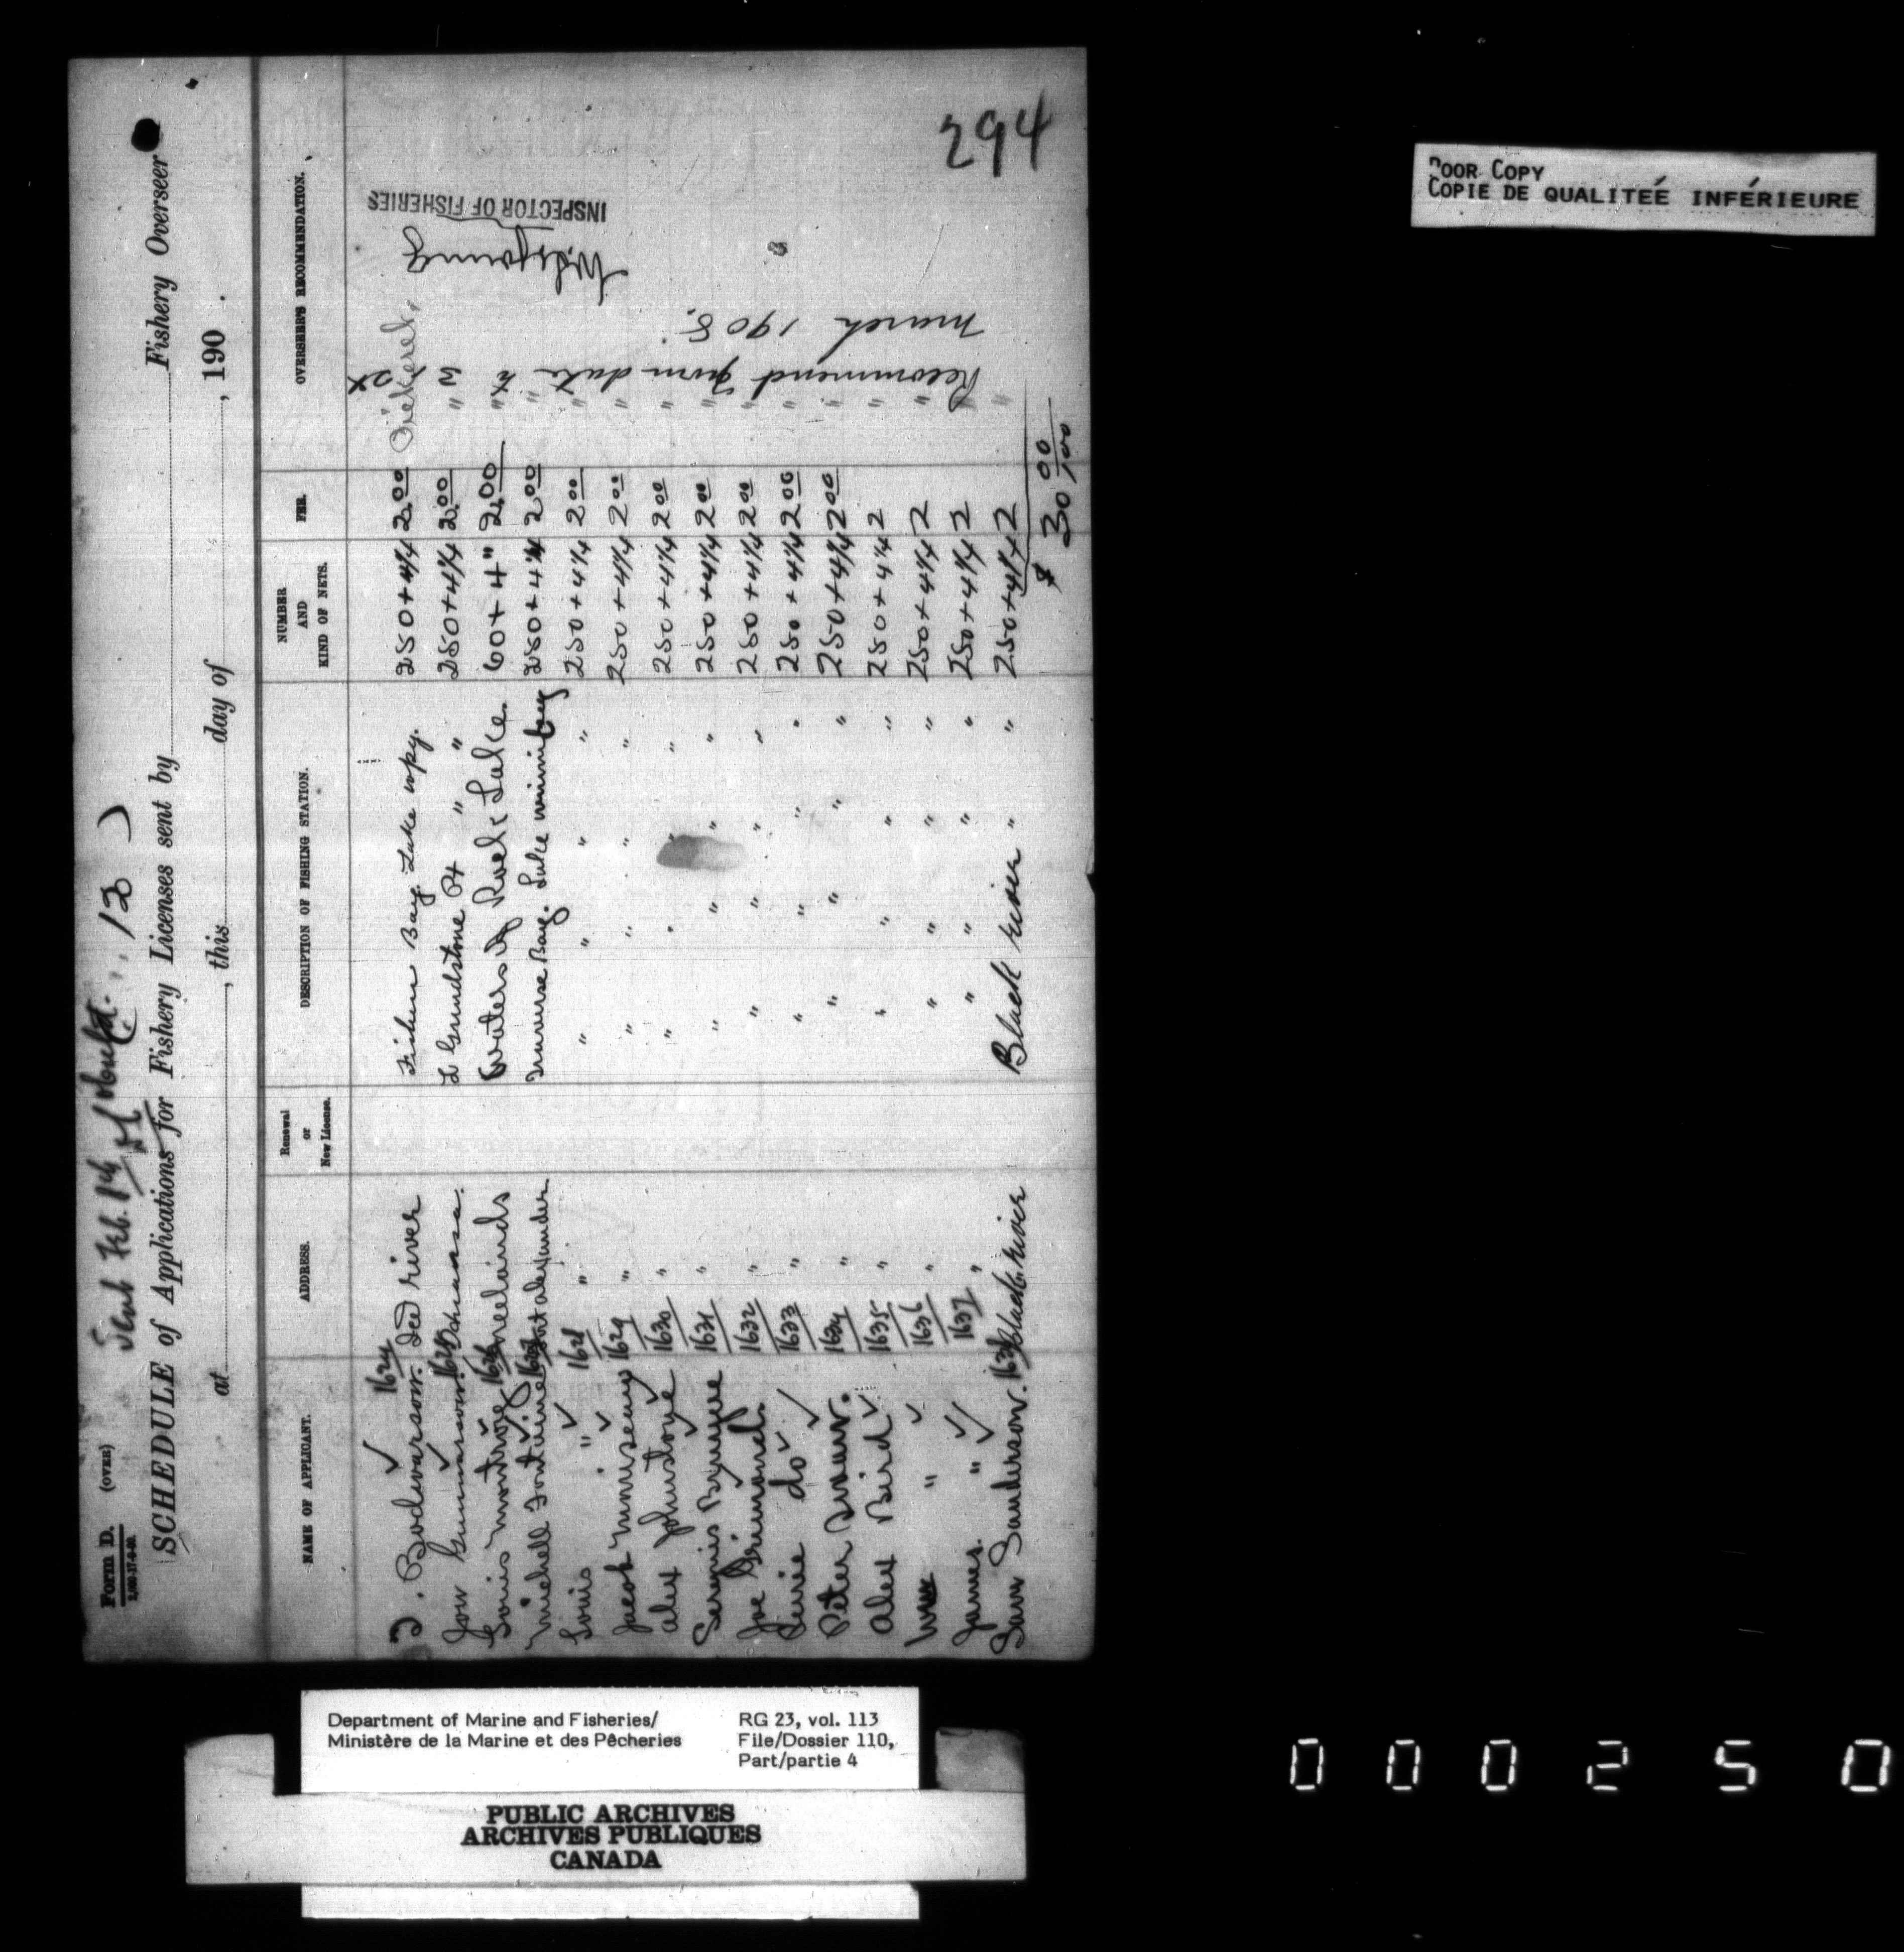 294
POOR COPY
COPIE DE QUALITEÉ INFÉRIEURE
Form D. (OVER)
Sent Feb. 14
SCHEDULE of Applications for Fishery Licenses sent by Fishery Overseer
at , this day of , 190 .
NAME OF APPLICANT. ADDRESS. Renewal or New License. DESCRIPTION OF FISHING STATION. NUMBER AND KIND OF NETS. FEE. OVERSEER'S RECOMMENDATION.
J. Bodvarsson. 1624 Icd river Fisher Bay Lake wpg. 250 + 4¼ 2.00 Pickerel.
Jon Gunnarsson. 1625 Grindstone Pt " " 250 + 4¼ 2.00 "
Louis 1626 Waters of Lake. 60 + 4" 2.00 "
Michell 1627 Fort Alexander Traverse Bay. Lake Winnipeg 250 + 4¼ 2.00 "
Louis " 1628 " " " " " 250 + 4¼ 2 00 "
Jacob 1629 " " " " " 250 + 4¼ 2 00 "
Alex Johnstone 1630 " " " " " 250 + 4¼ 2 00 "
Bruyere 1631 " " " " " 250 + 4¼ 2 00 "
Joe 1632 " " " " " 250 + 4¼ 2 00 "
do 1633 " " " " " 250 + 4¼ 2 00 "
Peter 1634 " " " " " 250 + 4¼ 2 00 "
Alex Bird 1635 " " " " " 250 + 4¼ 2 "
" 1636 " " " " " 250 + 4¼ 2 "
James. " 1637 " " " " " 250 + 4¼ 2 "
Sam Sanderson. 1638 Black River Black River " " 250 + 4¼ 2 "
$ 30 00/100
Recommend from date to 31st
March 1908.
INSPECTOR OF FISHERIES
Department of Marine and Fisheries/ RG 23, vol. 113
Ministère de la Marine et des Pêcheries File/Dossier 110,
Part/partie 4
PUBLIC ARCHIVES
ARCHIVES PUBLIQUES
CANADA
0 0 0 2 5 0